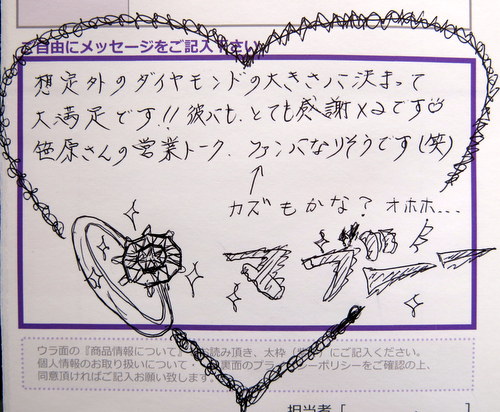 自由にメッセージをご記入下さい
想定外のダイヤモンドの大きさに決まって
大満足です!! 彼にも、とても感謝×2です
笹原さんの営業トーク、ファンになりそうです(笑)
↑
カズもかな? オホホ...
ウラ面の『商品情報について』
読み頂き、太枠
にご記入ください。
個人情報のお取り扱いについて・
裏面のプラ
シーポリシーをご確認の上、
同意頂ければご記入お願い致します
担当者 [ ]